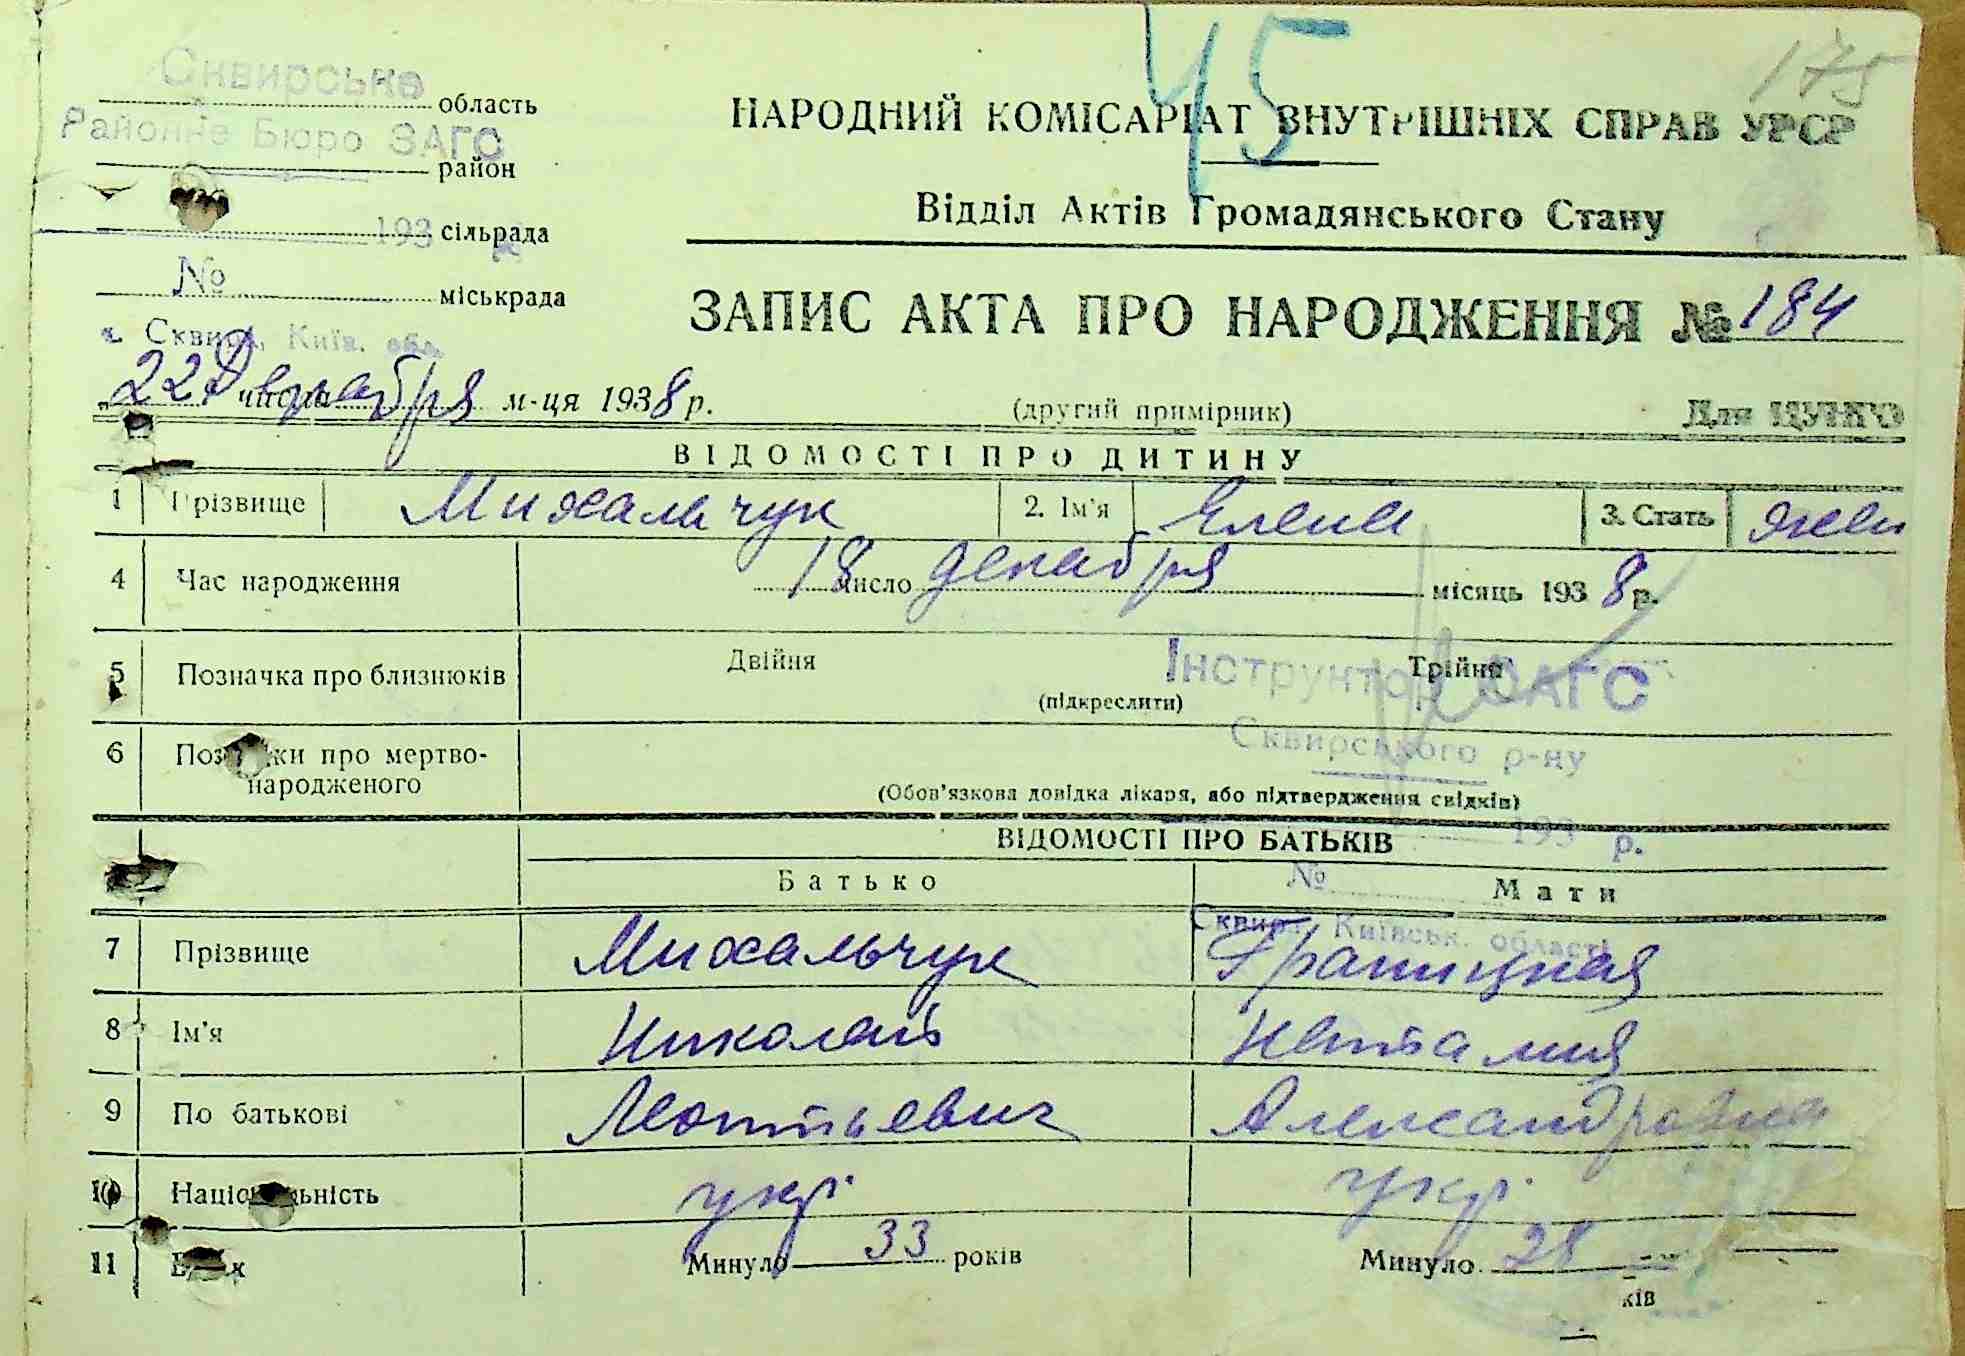 45
175
Сквирське область
Районне Бюро ЗАГС
район
193 сільрада
№ міськрада
м. Сквира, Київ. обл.
НАРОДНИЙ КОМІСАРІАТ ВНУТРІШНІХ СПРАВ УРСР
Відділ Актів Громадянського Стану
ЗАПИС АКТА ПРО НАРОДЖЕННЯ № 184
"22 числа Декабря м-ця 1938 р.
(другий примірник)
Для ЦУНХО
ВІДОМОСТІ ПРО ДИТИНУ
1 Прізвище Михальчук 2. Ім'я Елена 3. Стать жен
4 Час народження 18 число декабря місяць 1938 р.
5 Позначка про близнюків Двійня Трійня
(підкреслити)
Інструктор ЗАГС
Сквирського р-ну
6 Позначки про мертво-
народженого
(Обов'язкова довідка лікаря, або підтвердження свідків)
193 р.
ВІДОМОСТІ ПРО БАТЬКІВ
Батько Мати
№
Сквира, Київськ. області
7 Прізвище Михальчук Границкая
8 Ім'я Николай Наталия
9 По батькові Леонтьевич Александровна
10 Національність укр. укр.
11 Минуло 33 років Минуло 28
ків